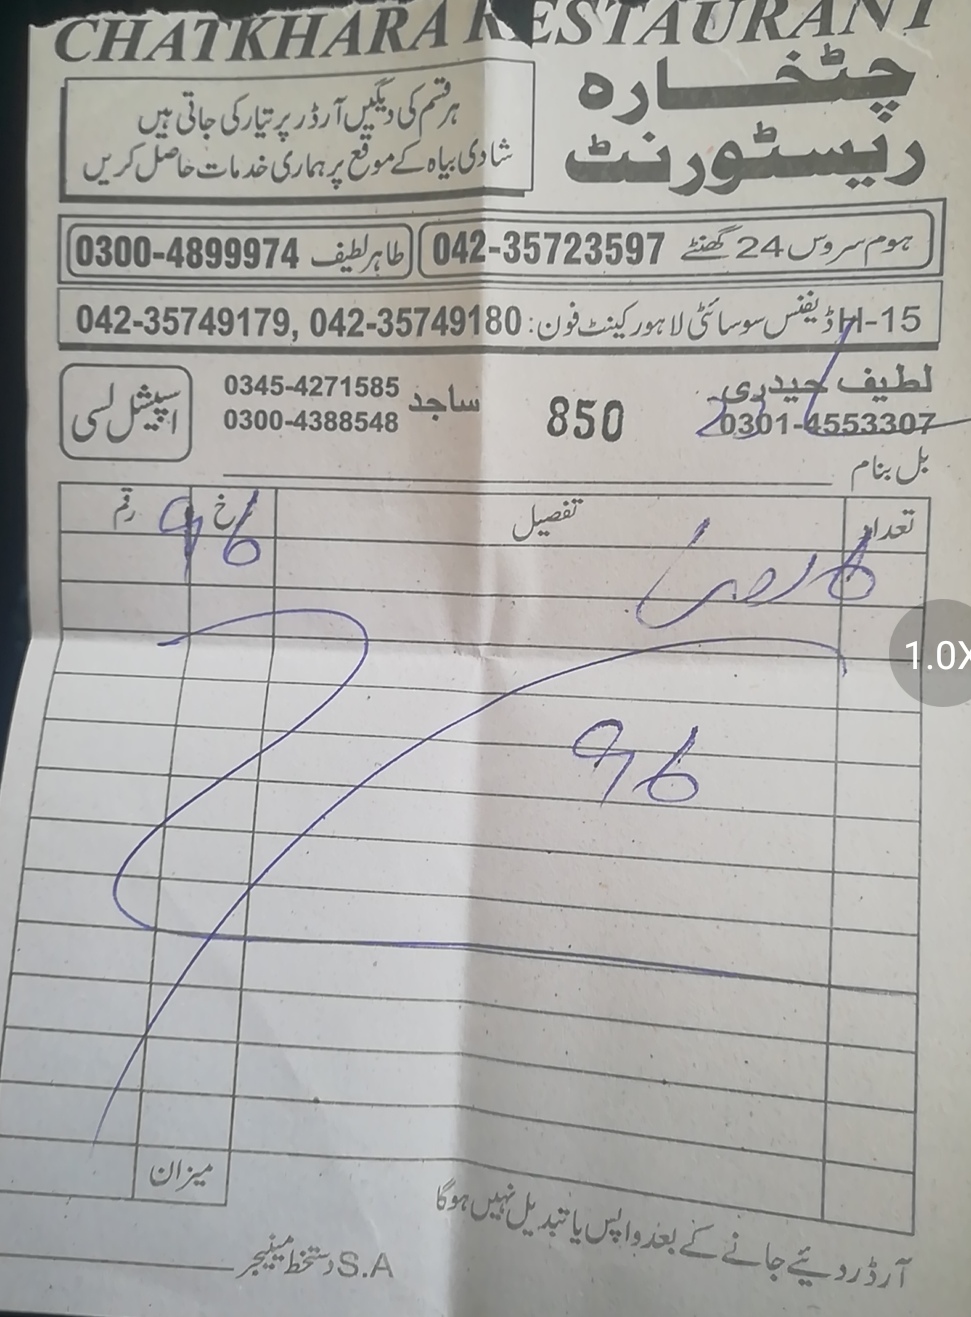 CHATKHARA RESTAURANT
چٹخارہ
ریسٹورنٹ
ہر قسم کی دیگیں آرڈر پر تیار کی جاتی ہیں
شادی بیاہ کے موقع پر ہماری خدمات حاصل کریں
ہوم سروس 24 گھنٹے 042-35723597
طاہر لطیف 0300-4899974
15-H ڈیفنس سوسائٹی لاہور کینٹ فون: 042-35749180 ,042-35749179
لطیف حیدری
0301-4553307
850
ساجد 0345-4271585
0300-4388548
اسپیشل لسی
بل بنام
تعداد تفصیل نرخ رقم
96
96
میزان
آرڈر دئیے جانے کے بعد واپس یا تبدیل نہیں ہوگا
S.A دستخط مینیجر
1.0X